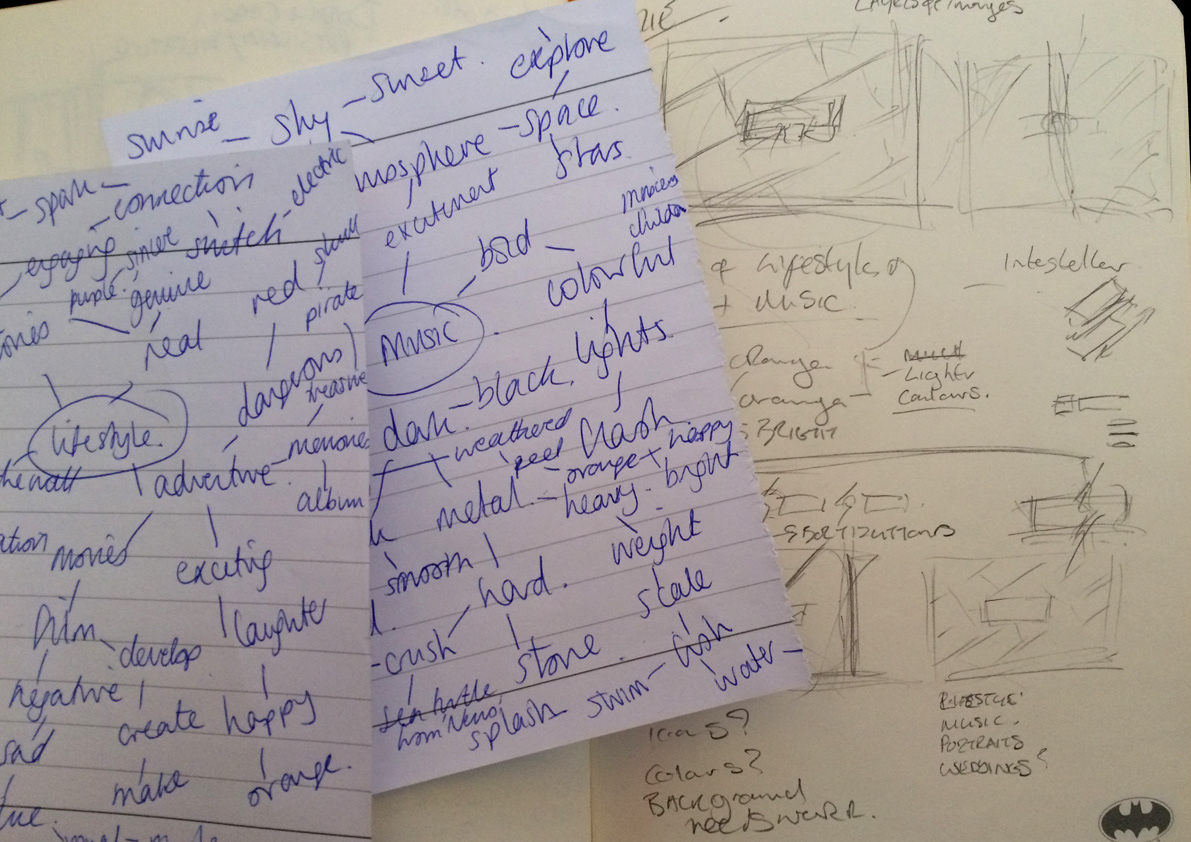 sunrise - sky - sunset. explore
mosphere - space.
excitement stars
bad - colourful
music
dark - black. lights.
weathered
peel
orange + happy
metal - heavy - bright
smooth
hard. weight
stale
- crush
stone.
sea turtle
from 'Nemo'
splash swim - fish
water -
spark - connection
electric
engaging sincere switch
purple. genuine
red skull
pirate
real
dangerous
treasure
lifestyle.
the wall
adventure - memories
album
movies exciting
film laughter
develop
negative
create happy
sad
make orange.
Layers of images
of Lifestyle,
+ Music.
Interstellar
Lighter
Colours.
BRIGHT
LIFESTYLE
MUSIC.
PORTRAITS
WEDDINGS?
Icons?
Colours?
BACKground
needs work.